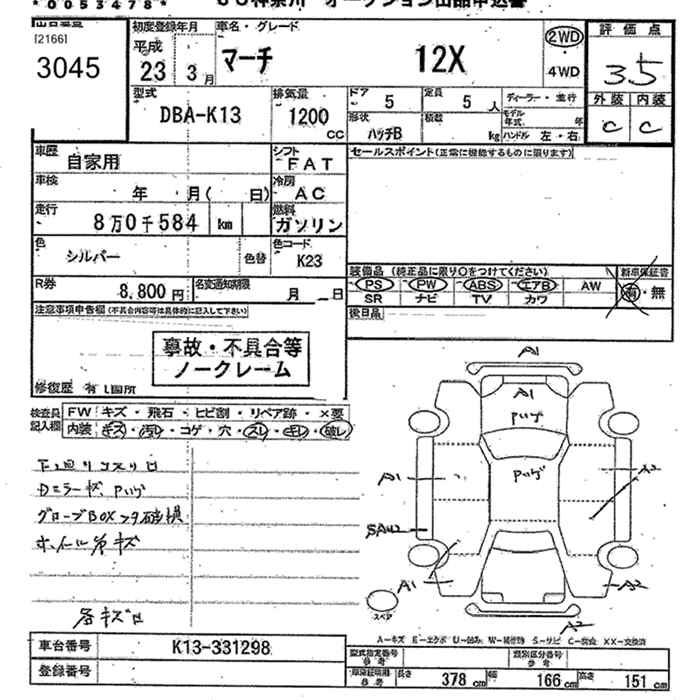 *0053478*
出品番号 初度登録年月 車名・グレード 評価点
[2166] 平成 2WD
3045 23 3月 マーチ 12X 4WD 3.5
型式 排気量 ドア 定員 ディーラー・並行 外装 内装
DBA-K13 1200 CC 5 5人 モデル年式 年 C C
形状 ハッチB 積載 kg ハンドル 左・右
車歴 自家用 シフト FAT セールスポイント(正常に機能するものに限ります)
車検 年 月( 日) 冷房 AC
走行 8万0千584 km 燃料 ガソリン
色 シルバー 色替 色コード K23
装備品(純正品に限り○をつけてください) 新車保証書
R券 8,800円 名変通知期限 月 日
PS PW ABS エアB AW 有・無
SR ナビ TV カワ
注意事項申告欄(不具合内容等は具体的に記入して下さい) 後日品
事故・不具合等
ノークレーム
修復歴 有
検査員 FW キズ・飛石・ヒビ割・リペア跡・×要
記入欄 内装 キズ・汚レ・コゲ・穴・スレ・キレ・破レ
A1
A1
A1 A2
A1 A2
スペア
A2
A-キズ E-エクボ U-凹み W-補修跡 S-サビ C-腐食 XX-交換済
車台番号 K13-331298
登録番号
型式指定番号 参考 類別区分番号 参考
長さ 378 cm 幅 166 cm 高さ 151 cm